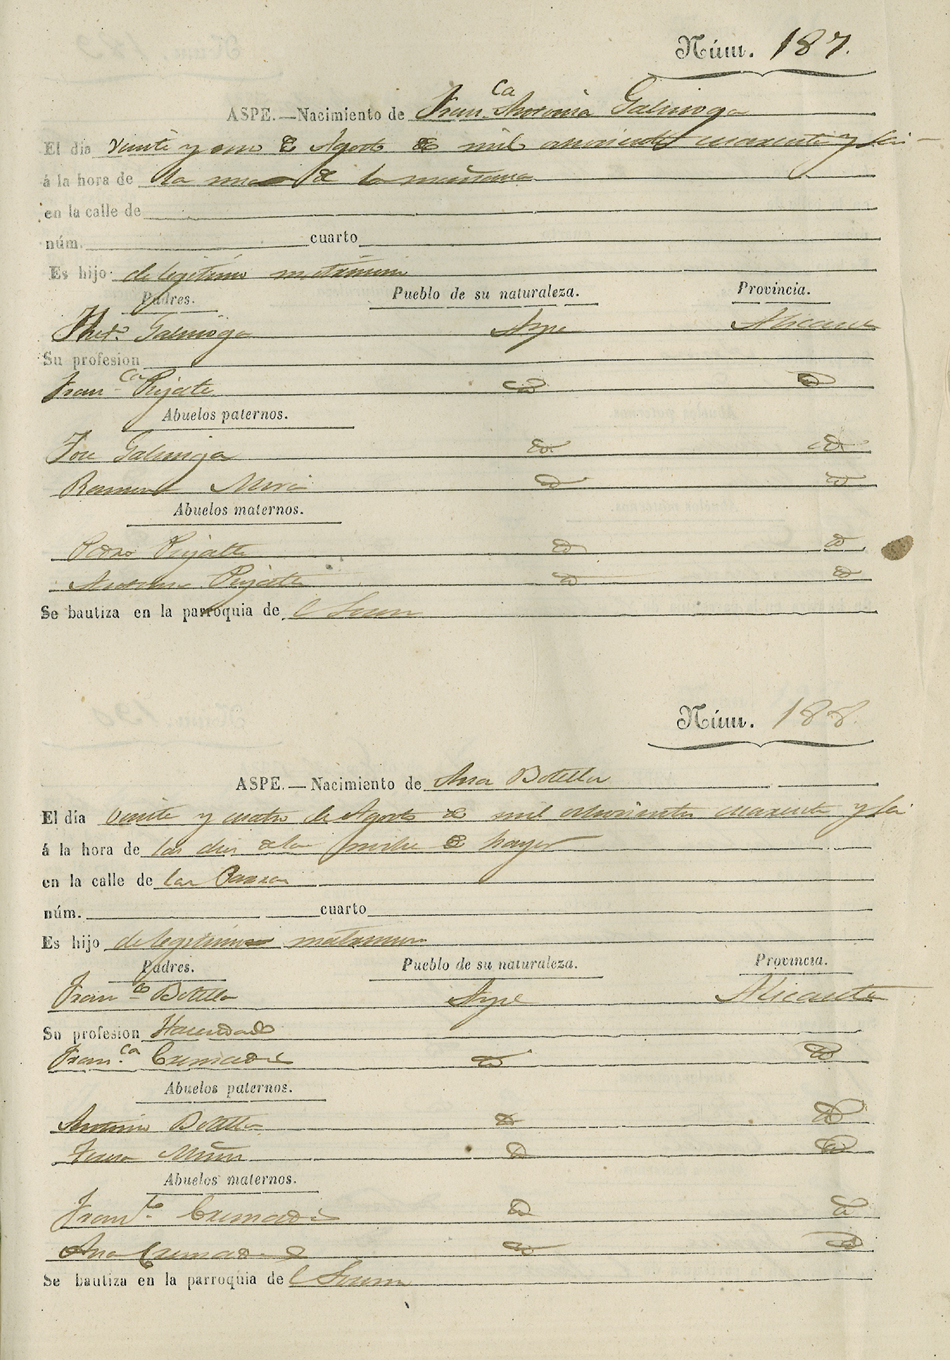 Núm. 187.
ASPE.—Nacimiento de Fran.ca Antonia Galinoga
El dia veinte y uno de Agosto de mil ochocientos cuarenta y seis
á la hora de la una de la mañana
en la calle de
núm. cuarto
Es hijo de legitimo matrimonio
Padres. Pueblo de su naturaleza. Provincia.
Galinoga Aspe Alicante
Su profesion
Fran.ca Pujalte
Abuelos paternos.
José Galinoga
Ramona Mira
Abuelos maternos.
Pedro Pujalte
Antonia Pujalte
Se bautiza en la parroquia de
Núm. 188.
ASPE.—Nacimiento de Ana Botella
El dia veinte y cuatro de Agosto de mil ochocientos cuarenta y seis
á la hora de las dies de la noche de hayer
en la calle de
núm. cuarto
Es hijo de legitimo matrimonio
Padres. Pueblo de su naturaleza. Provincia.
Fran.co Botella Aspe Alicante
Su profesion Hacendado
Fran.ca Cremades
Abuelos paternos.
Antonio Botella
Abuelos maternos.
Fran.co Cremades
Ana Cremades
Se bautiza en la parroquia de